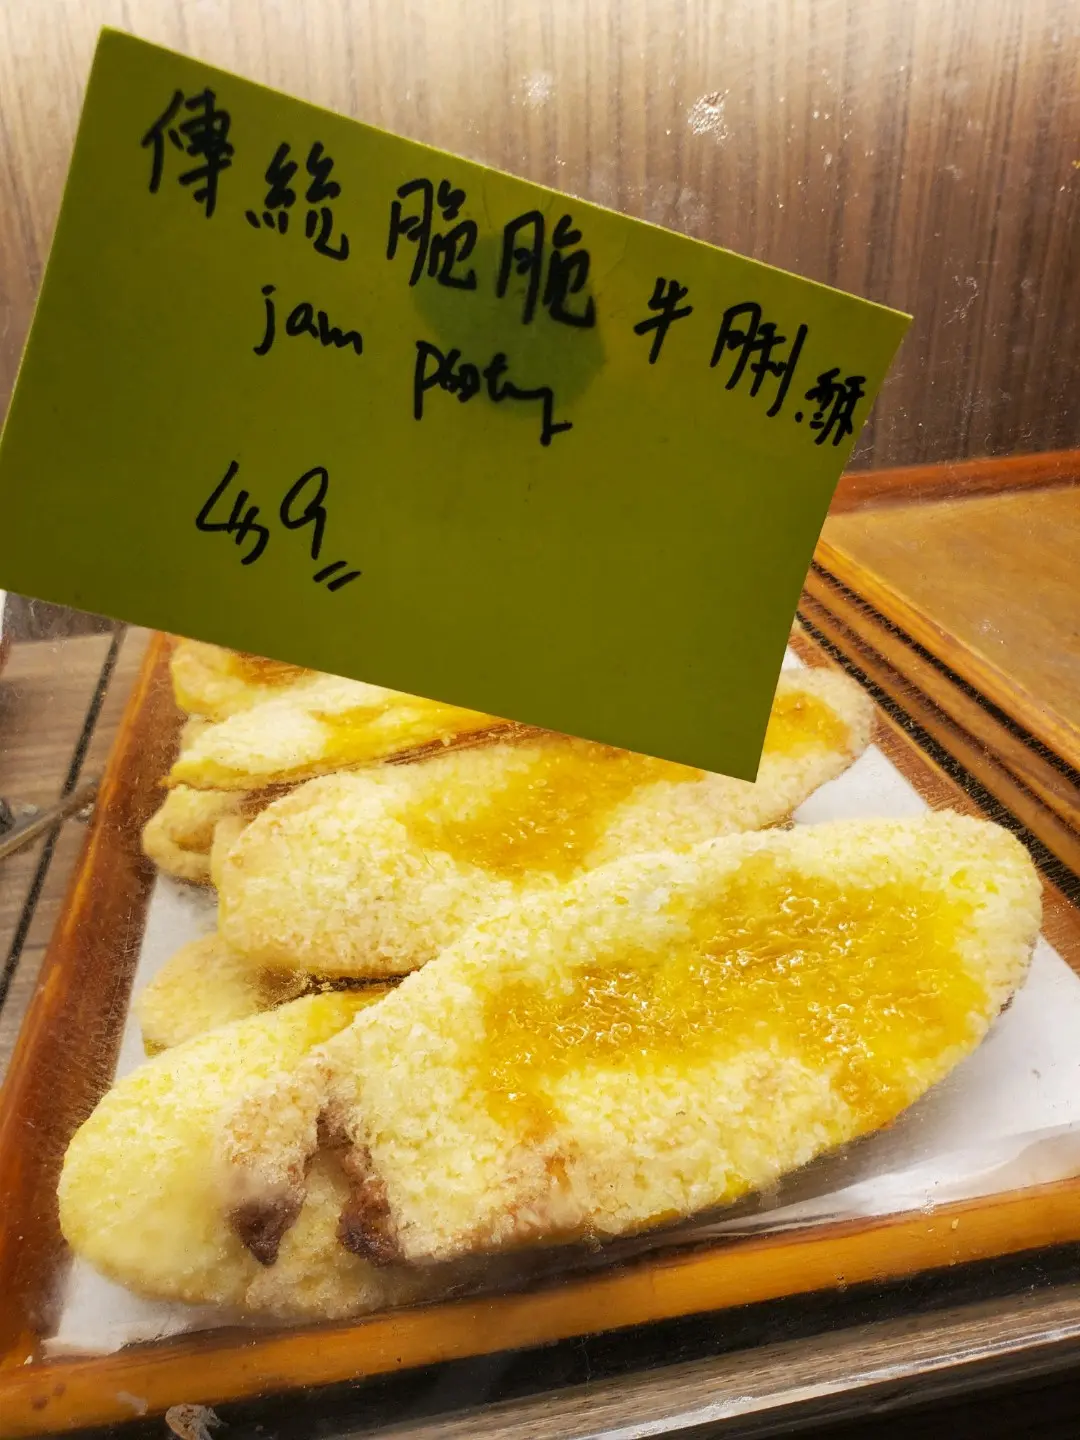 傳統脆脆牛脷酥
jam pasty
49